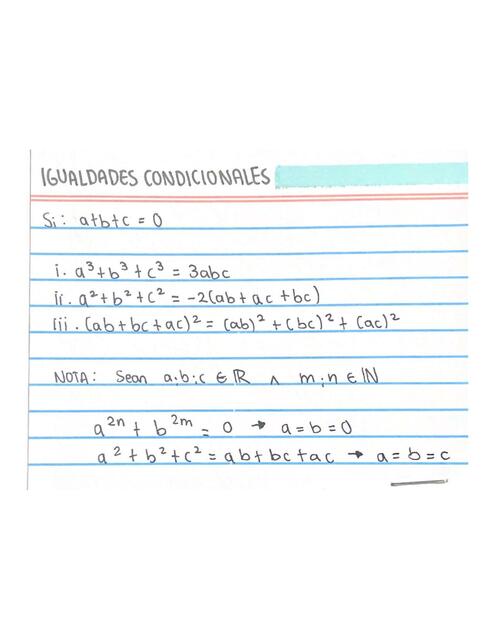 IGUALDADES CONDICIONALES
Si: a+b+c = 0
i. a³+b³+c³ = 3abc
ii. a²+b²+c² = -2(ab+ac+bc)
iii. (ab+bc+ac)² = (ab)²+(bc)²+(ac)²
NOTA: Sean a;b;c ∈ ℝ ∧ m;n ∈ ℕ
a²ⁿ + b²ᵐ = 0 → a=b=0
a²+b²+c² = ab+bc+ac → a=b=c